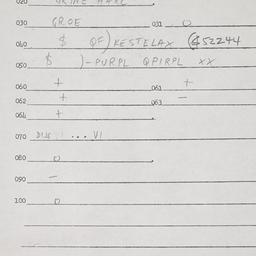 020
030 GROE 031 O
040 $ QF) KESTELAX ($52244
050 $ )-PURPL QPIRPL XX
060 + 061 +
062 + 063 —
064 +
070 ... VI
080 O
090 —
100 O